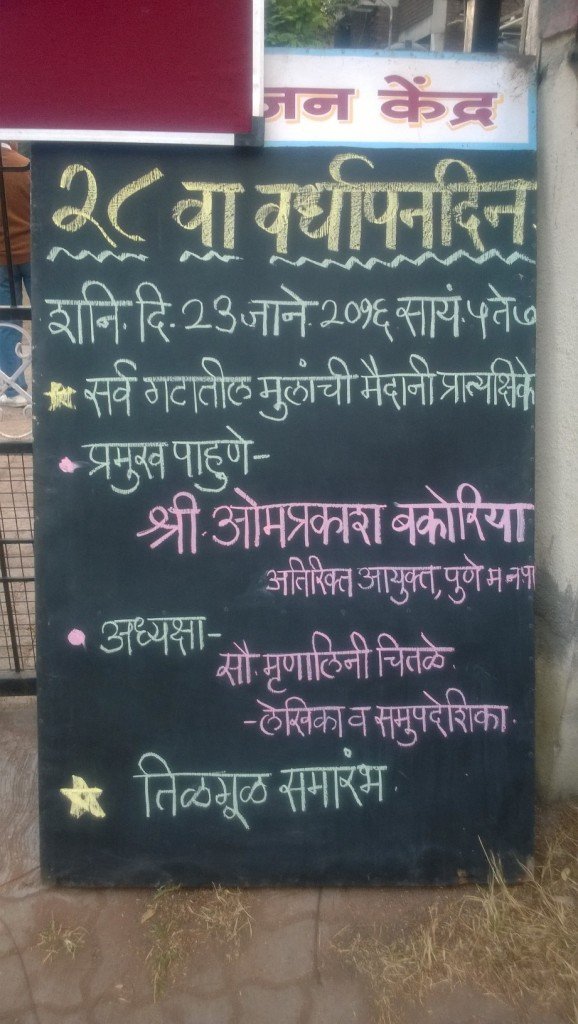 जन केंद्र
२८ वा वर्धापनदिन.
शनि. दि. 23 जाने. २०१६ सायं. ५ ते ७
सर्व गटातील मुलांची मैदानी प्रात्यक्षिके
प्रमुख पाहुणे-
श्री. ओमप्रकाश बकोरिया
अतिरिक्त आयुक्त, पुणे म न पा
अध्यक्षा-
सौ. मृणालिनी चितळे.
-लेखिका व समुपदेशिका.
तिळगूळ समारंभ.